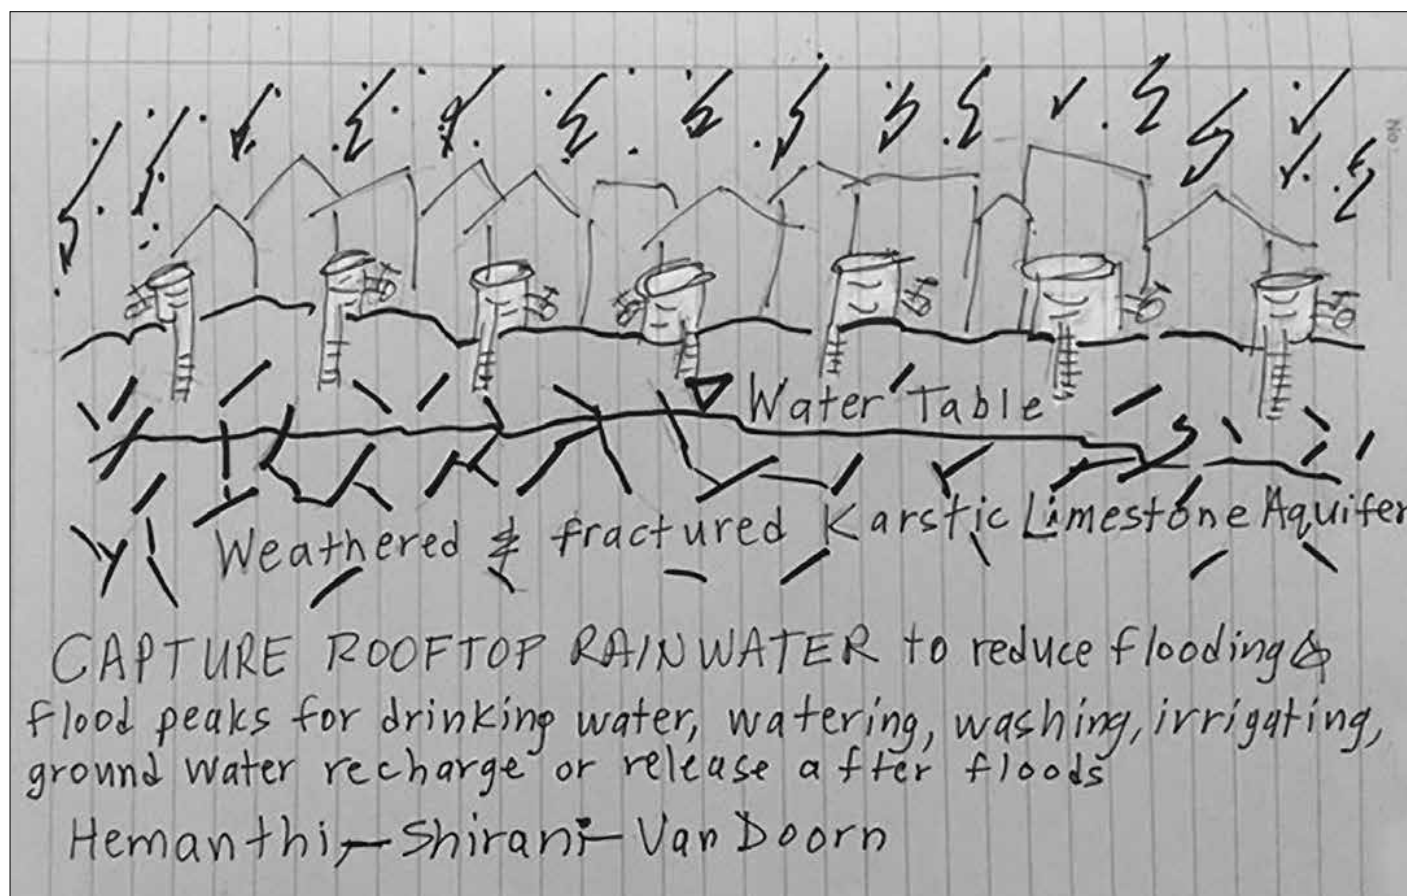 Water Table
Weathered & fractured Karstic Limestone Aquifer
CAPTURE ROOFTOP RAINWATER to reduce flooding &
flood peaks for drinking water, watering, washing, irrigating,
ground water recharge or release after floods
Hemanthi-Shirani-Van Doorn
No